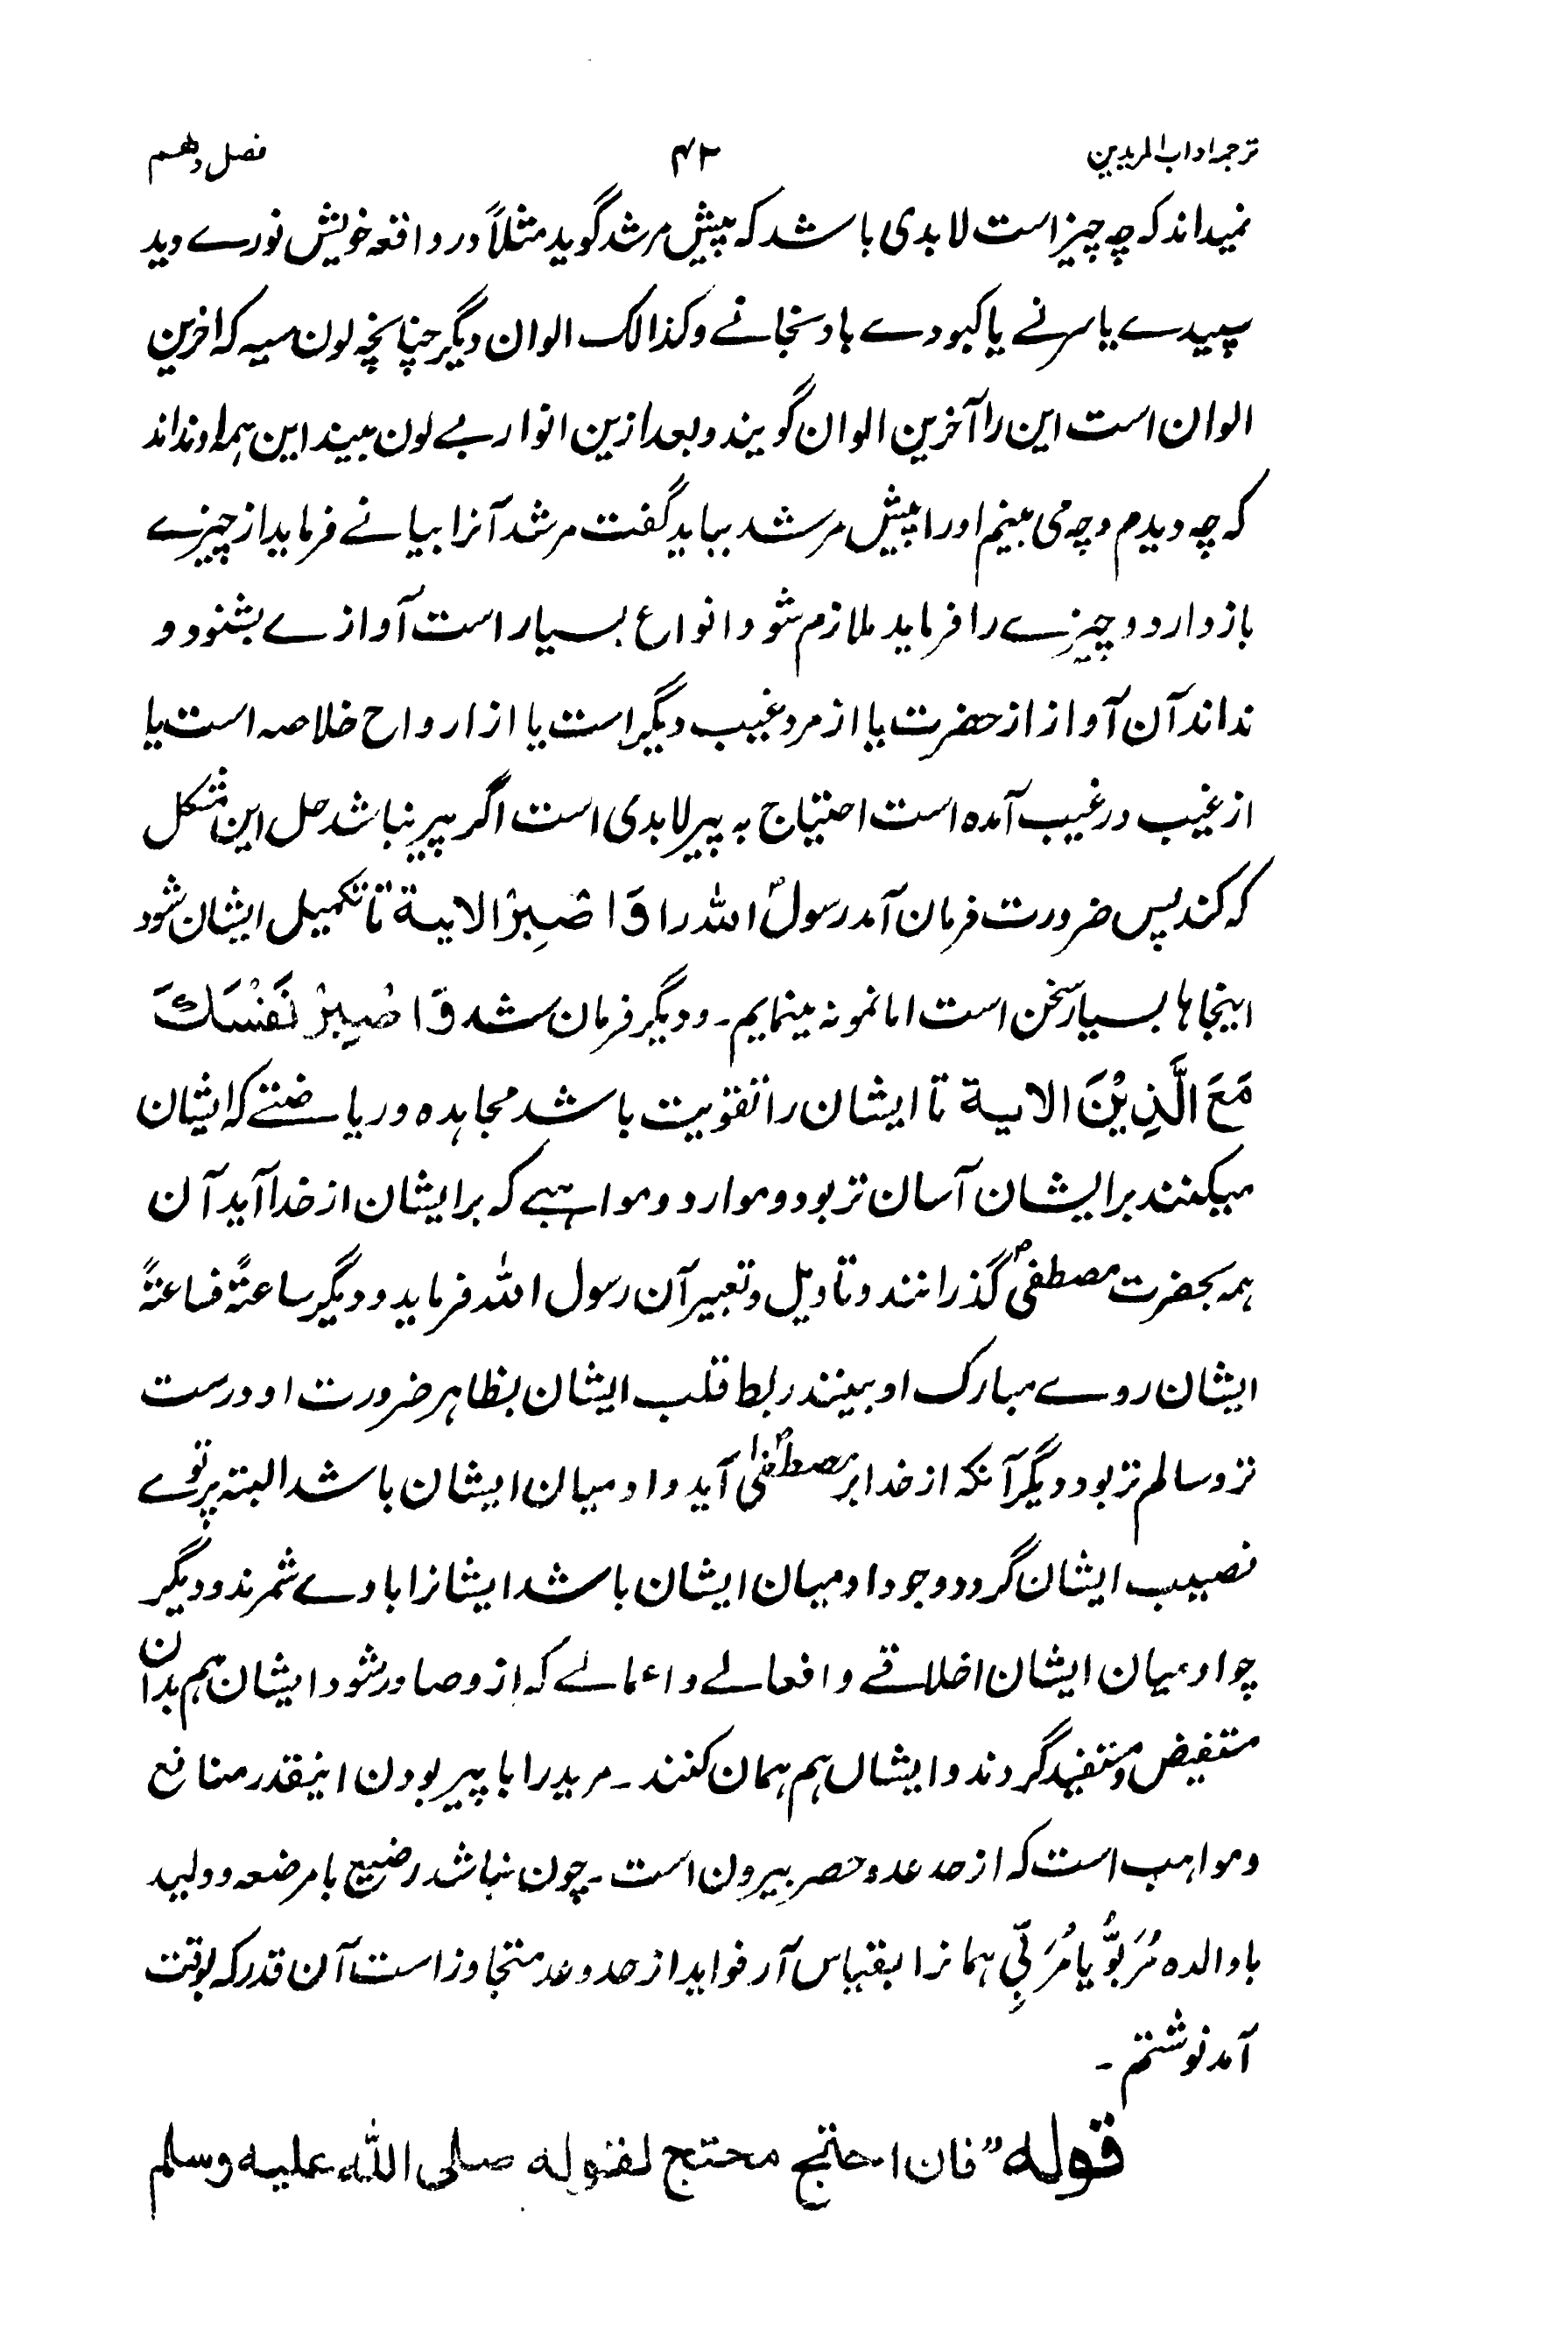 ترجمہ اداب المریدین ۴۲ فصل دھسم
نمیداند کہ چہ چیز است لا بدی باشد کہ پیش مرشد گوید مثلاً در واقعہ خویش نورے دید
سپیدے یا سرخے یا کبودے یا و سنجانے وکذالک الوان دیگر چنانچہ لون سیہ کہ اخرین
الوان است این را آخرین الوان گویند وبعد ازین انوار بے لون بیند این ہمہ او نداند
کہ چہ دیدم وچہ می بینم اورا پیش مرشد بباید گفت مرشد آنرا بیانے فرماید از چیزے
باز دارد و چیزے را فرماید ملازم شو و انواع بسیار است آوازے بشنود و
نداند آن آواز از حضرت یا از مرد غیب دیگر است یا از ارواح خلاصہ است یا
از غیب در غیب آمدہ است احتیاج بہ پیر لابدی است اگر پیر نباشد حل این مشکل
کہ کند پس ضرورت فرمان آمد رسولؐ اللہ را وَاصْبِرْ الایة تا تکمیل ایشان شود
اینجاہا بسیار سخن است اما نمونہ مینمایم ۔ ودیگر فرمان شد وَاصْبِرْ نَفْسَكَ
مَعَ الَّذِیْنَ الایة تا ایشان را تقویت باشد مجاہدہ وریاضتے کہ ایشان
میکنند بر ایشان آسان تر بود وموارد ومواہبے کہ بر ایشان از خدا آید آن
ہمہ بحضرت مصطفیؐ گذرانند وتاویل وتعبیر آن رسول اللہ فرماید ودیگر ساعتہً فساعتہً
ایشان روے مبارک او بینند ربط قلب ایشان بظاہر ضرورت او درست
تر وسالم تر بود دیگر آنکہ از خدا بر مصطفیٰؐ آید و او میان ایشان باشد البتہ پرتوے
نصیب ایشان گردد وجود او میان ایشان باشد ایشانرا با وے شمرند ودیگر
چو او میان ایشان اخلاقے وافعالے واعمالے کہ از وصادر شود ایشان ہم بدان
مستفیض ومستفید گردند وایشاں ہم ہمان کنند ۔ مرید را با پیر بودن اینقدر منافع
ومواہب است کہ از حد عد وحصر بیرون است ۔ چون نباشد رضیع با مرضعہ وولید
با والدہ مُرَبُّو یا مُرَبِّی ہمانرا بقیاس آر فواید از حد وعد متجاوز است آن قدر کہ بوقت
آمد نوشتم ۔
قوله ”فان احتج محتج لقوله صلی اللہ علیه وسلم